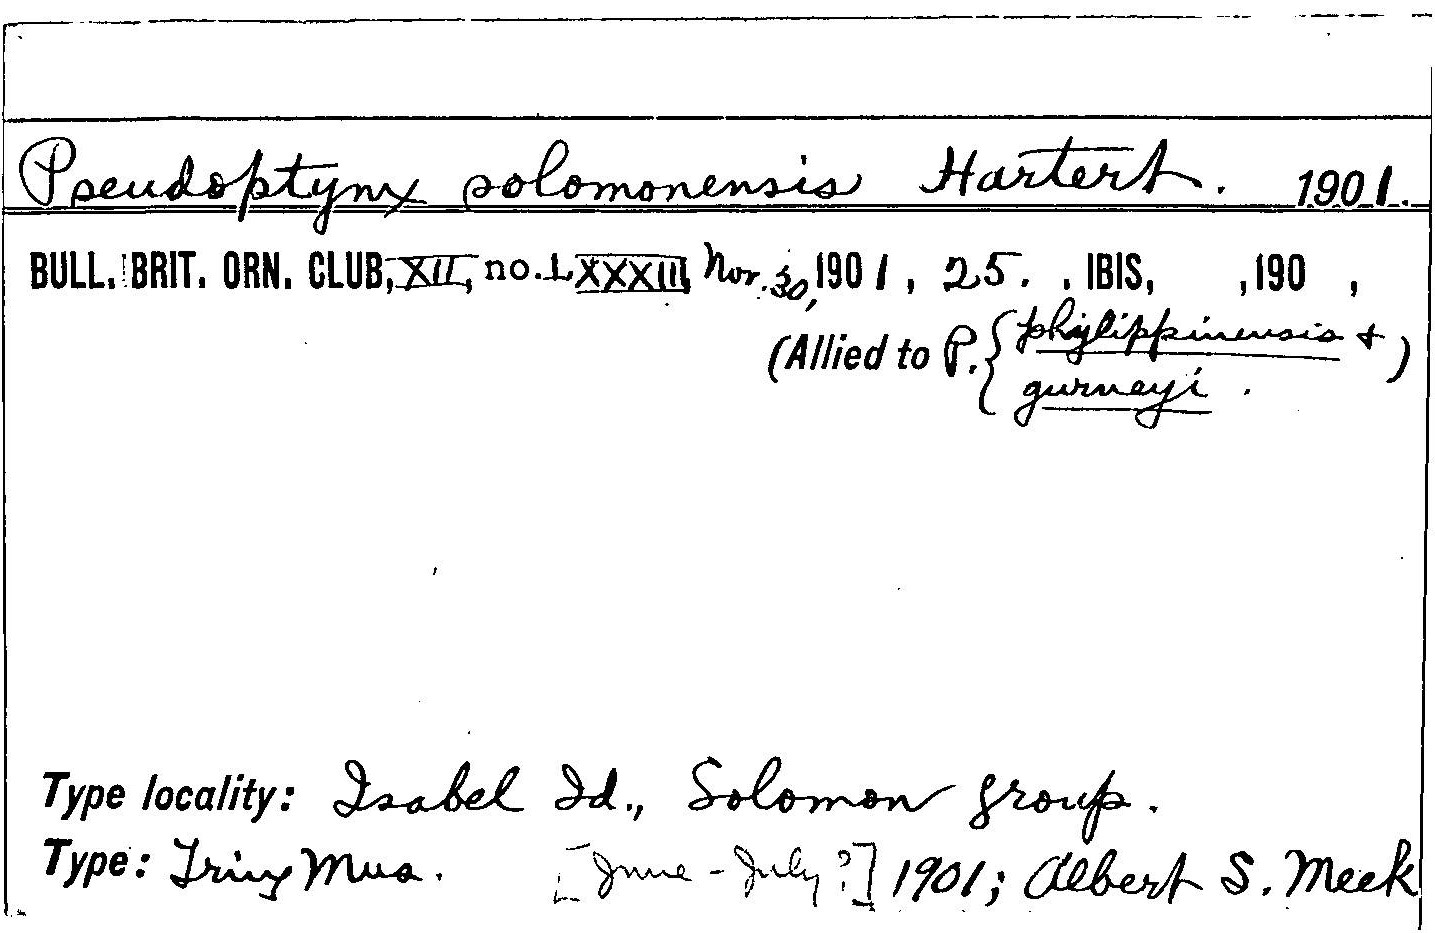 Pseudoptynx solomonensis Hartert. 1901.
BULL. BRIT. ORN. CLUB, XII, no. LXXXIII, Nov. 30, 1901, 25. , IBIS, ,190 ,
(Allied to P. { philippinensis &
gurneyi . )
Type locality: Isabel Id., Solomon group.
Type: Tring Mus. [June - July?] 1901; Albert S. Meek